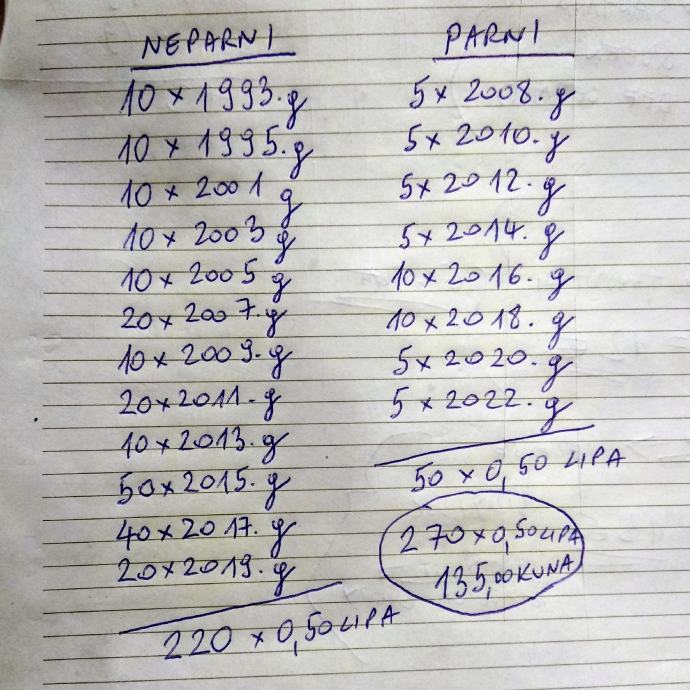 NEPARNI
10 x 1993.g
10 x 1995.g
10 x 2001 g
10 x 2003 g
10 x 2005 g
20 x 2007.g
10 x 2009.g
20 x 2011.g
10 x 2013.g
50 x 2015.g
40 x 2017.g
20 x 2019.g
220 x 0,50 LIPA
PARNI
5 x 2008.g
5 x 2010.g
5 x 2012.g
5 x 2014.g
10 x 2016.g
10 x 2018.g
5 x 2020.g
5 x 2022.g
50 x 0,50 LIPA
270 x 0,50 LIPA
135,00 KUNA